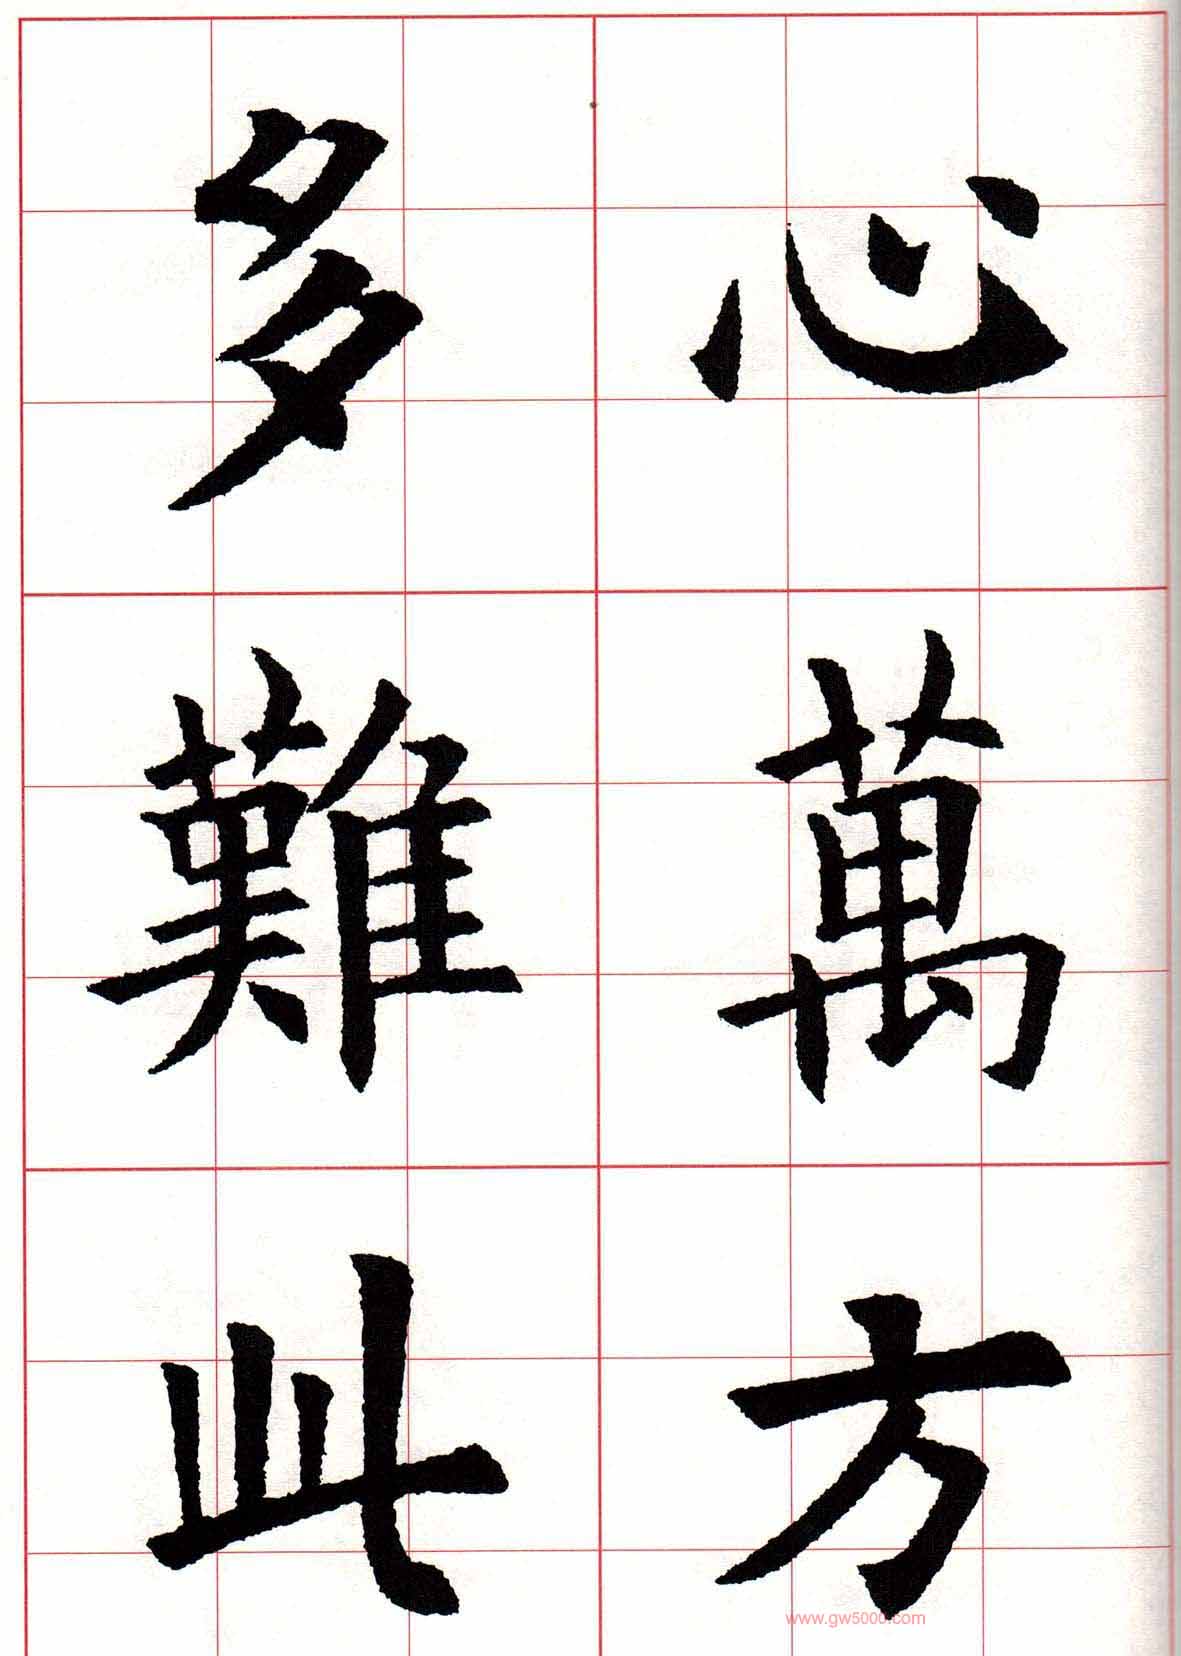 心萬方
多難此
www.gw5000.com